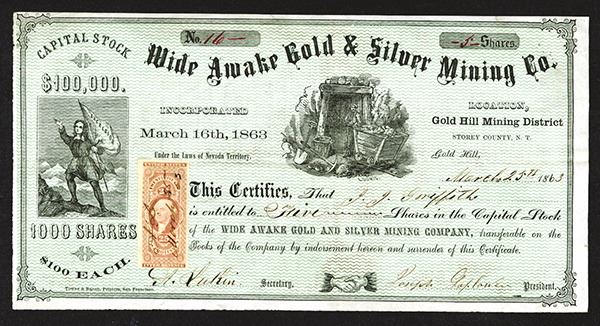 CAPITAL STOCK
$100,000.
No. 16
5 Shares.
Wide Awake Gold & Silver Mining Co.
INCORPORATED
March 16th, 1863
Under the Laws of Nevada Territory.
LOCATION,
Gold Hill Mining District
STOREY COUNTY, N. T.
Gold Hill, March 25th 1863
This Certifies, That J. J. Griffith
is entitled to Five Shares in the Capital Stock
of the WIDE AWAKE GOLD AND SILVER MINING COMPANY, transferable on the
Books of the Company by indorsement hereon and surrender of this Certificate.
1000 SHARES
$100 EACH.
Secretary.
Joseph
President.
Towne & Bacon, Printers, San Francisco.